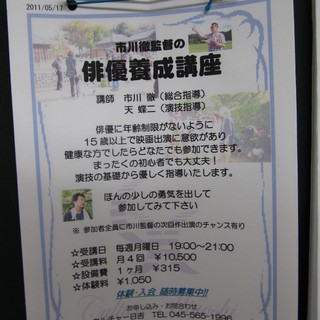 2011/05/17
市川徹監督の
俳優養成講座
講師 市川 徹(総合指導)
天 蝶二(演技指導)
俳優に年齢制限がないように
15歳以上で映画出演に意欲があり
健康な方でしたらどなたでも参加できます。
まったくの初心者でも大丈夫!
演技の基礎から優しく指導いたします。
ほんの少しの勇気を出して
参加してみて下さい
※ 参加者全員に市川監督の次回作出演のチャンス有り
☆受講日 毎週月曜日 19:00~21:00
☆受講料 月4回 ¥10,500
☆設備費 1ヶ月 ¥315
☆体験料 ¥1,050
体験・入会 随時募集中!!
お申し込み・お問合わせ
カルチャー日吉 TEL 045-565-1996